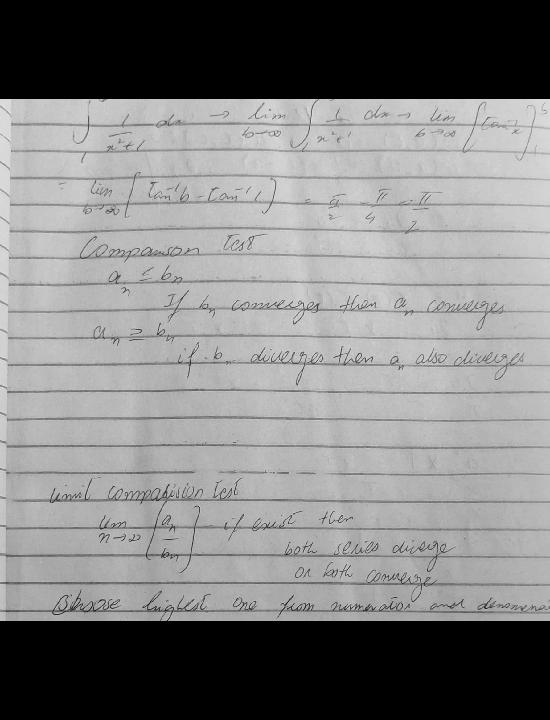 ∫₁ 1/(x²+1) dx → lim b→∞ ∫₁ 1/(x²+1) dx → lim b→∞ [tan⁻¹x]₁ᵇ
= lim b→∞ [tan⁻¹b - tan⁻¹1] = π/2 - π/4 = π/2
Comparison Test
aₙ ≤ bₙ
If bₙ converges then aₙ converges
aₙ ≥ bₙ
if bₙ diverges then aₙ also diverges
limit comparision test
lim n→∞ [aₙ/bₙ] if exist then
both series diverge
or both converge
Choose highest one from numerator and